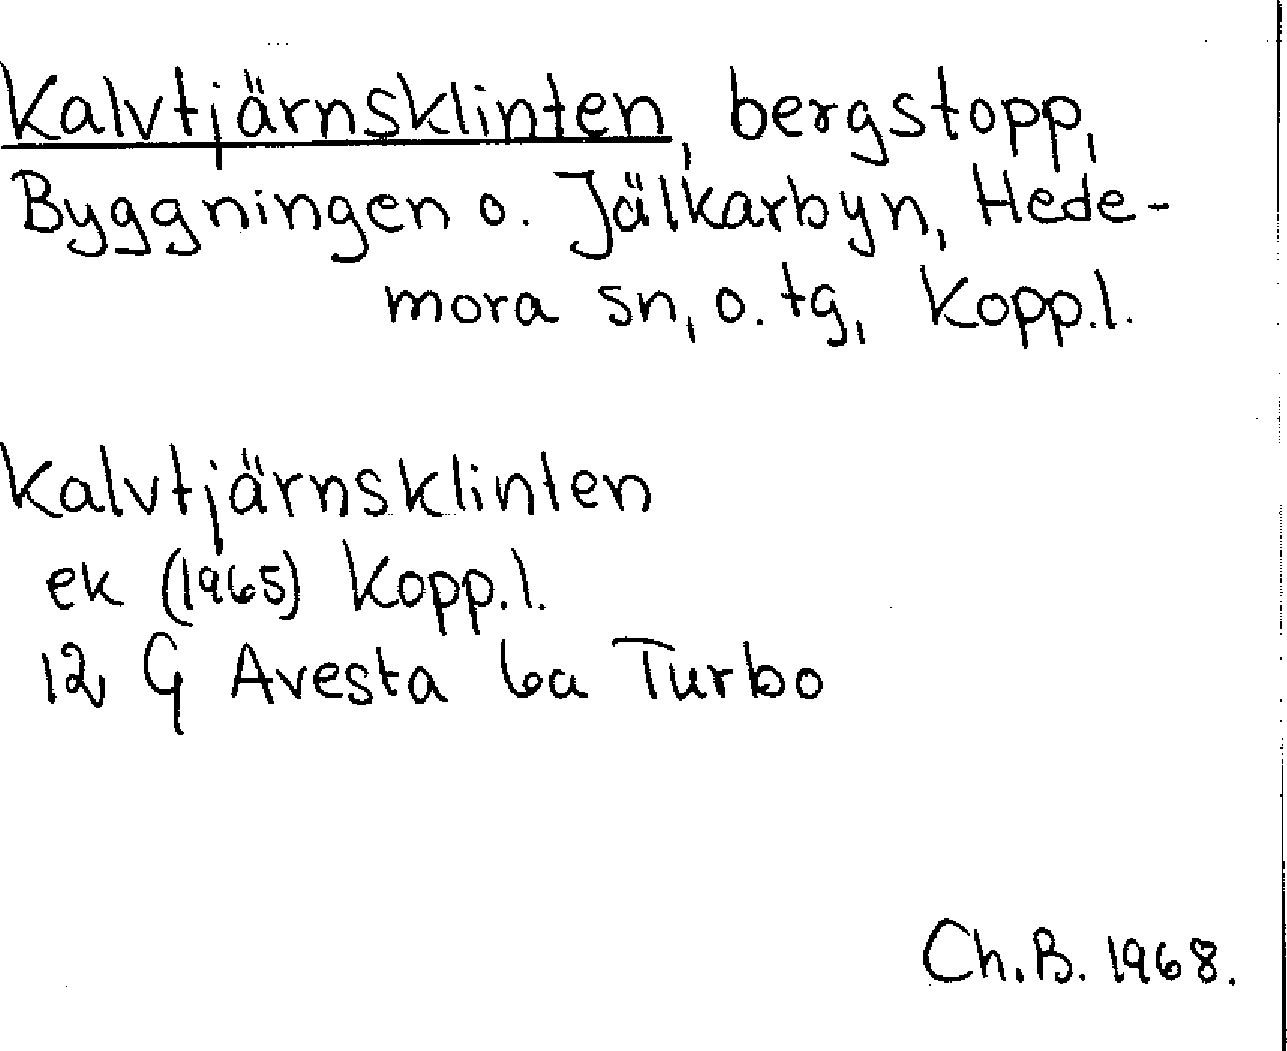 Kalvtjärnsklinten, bergstopp,
Byggningen o. Jälkarbyn, Hede-
mora sn, o. tg, Kopp.l.
Kalvtjärnsklinten
ek (1965) Kopp.l.
12 G Avesta 6a Turbo
Ch.B. 1968.